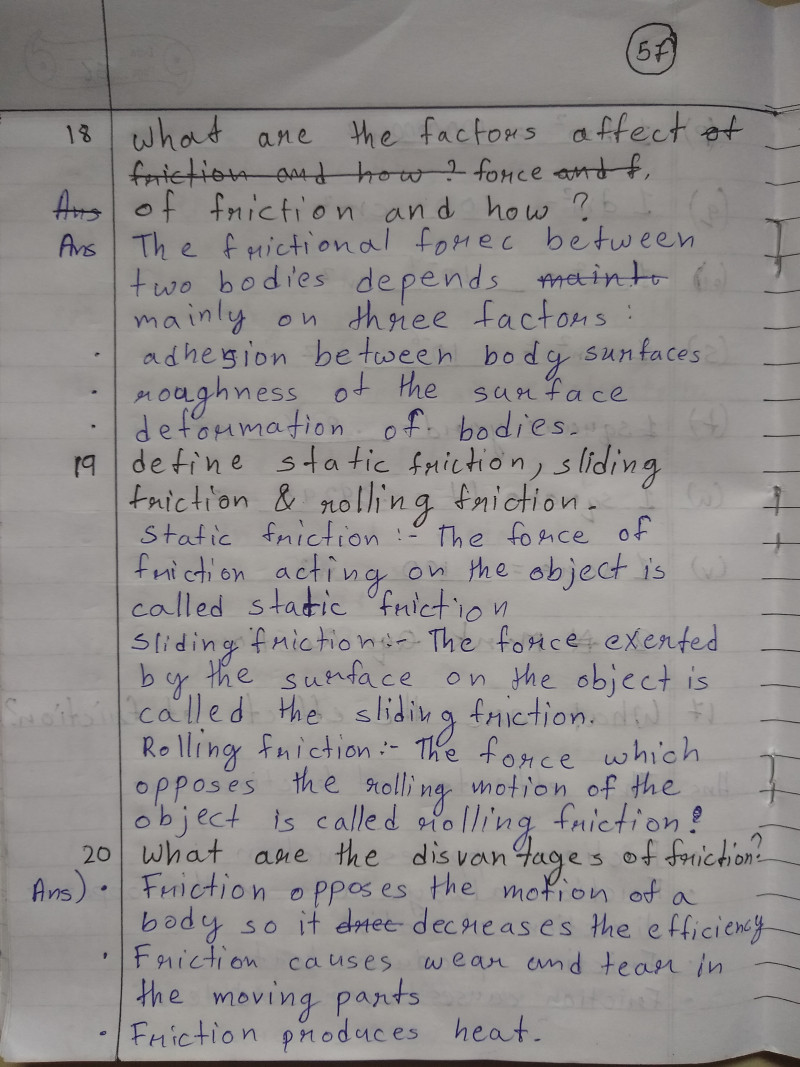 57
18 What are the factors affect of
friction and how ? force and f,
Ans of friction and how ?
Ans The frictional forec between
two bodies depends mainto
mainly on three factors :
· adhesion between body surfaces
· roaghness of the surface
· deformation of bodies.
19 define static friction, sliding
friction & rolling friction.
Static friction :- The force of
friction acting on the object is
called static friction
Sliding friction :- The force exerted
by the surface on the object is
called the sliding friction.
Rolling friction :- The force which
opposes the rolling motion of the
object is called rolling friction.
20 What are the disvantages of friction?
Ans) · Friction opposes the motion of a
body so it drec decreases the efficiency
· Friction causes wear and tear in
the moving parts
· Friction produces heat.